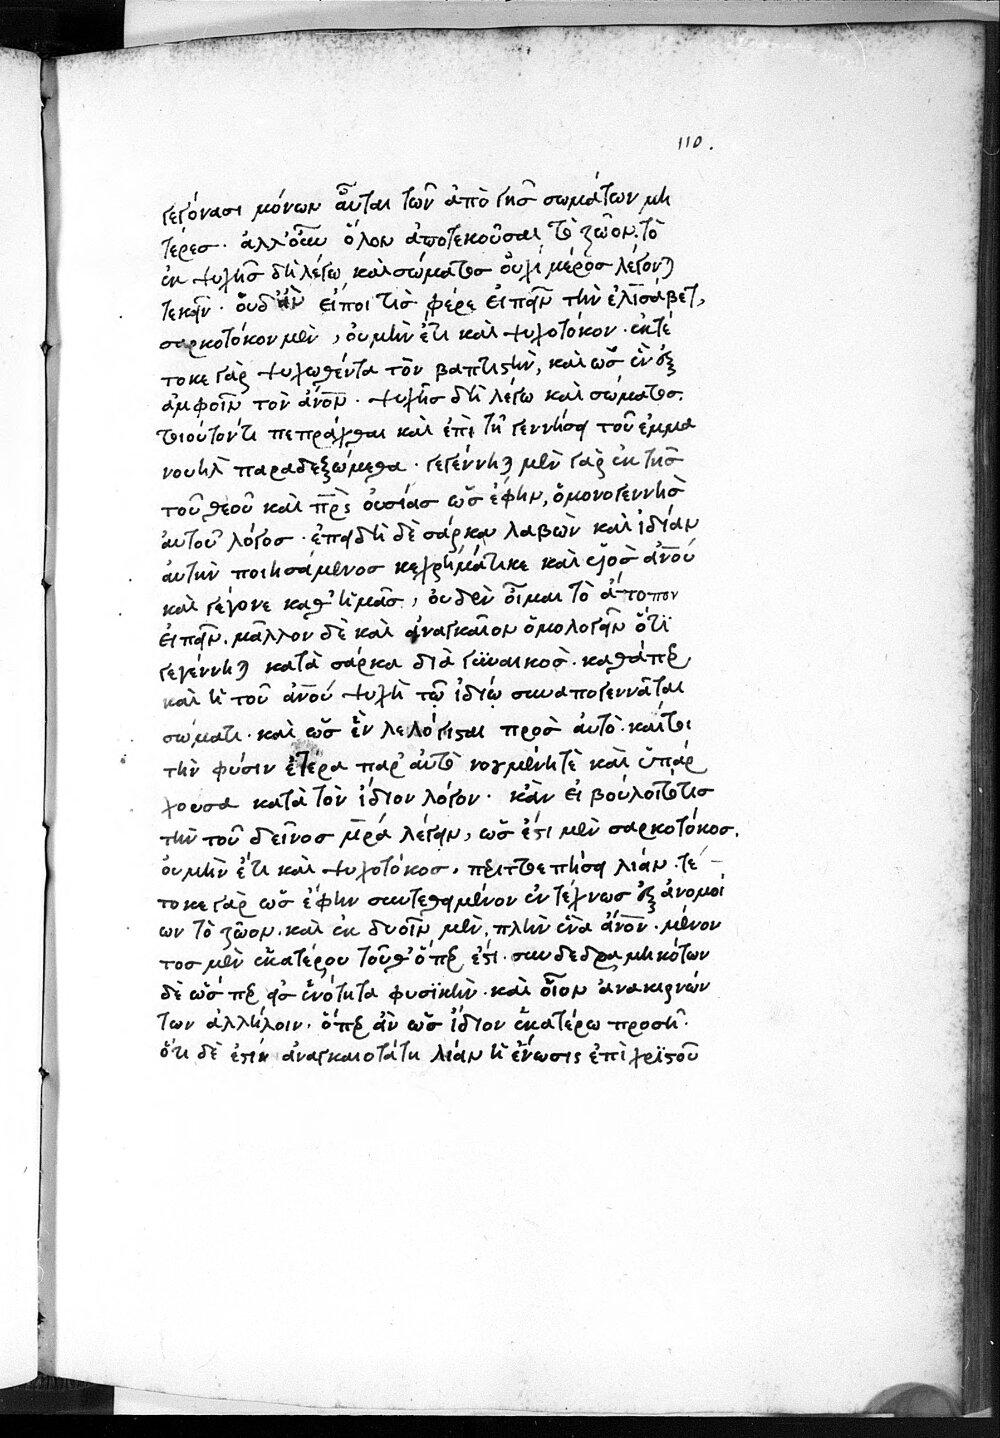 110.
γεγόνασι μόνων αὗται τῶν ἀπὸ γῆς σωμάτων μη
τέρες. ἀλλ' ὅλον ἀποτεκοῦσαι τὸ ζῶον. τὸ
ἐκ ψυχῆς δὴ λέγω καὶ σώματος οὐχὶ μέρος λέγον)
τεκεῖν. οὐδ' ἂν εἴποι τὶς φέρε εἰπεῖν τὴν ἐλισάβετ,
σαρκοτόκον μὲν, οὐ μὴν ἔτι καὶ ψυχοτόκον. ἐκτέ
τοκε γὰρ ψυχωθέντα τὸν βαπτιστὴν, καὶ ὡς ἓν ἐξ
ἀμφοῖν τὸν ἄνον. ψυχῆς δὴ λέγω καὶ σώματος.
τοιοῦτόν τι πεπράχθαι καὶ ἐπὶ τῇ γεννήσει τοῦ ἐμμα
νουὴλ παραδεξώμεθα. γεγέννη) μὲν γὰρ ἐκ τῆς
τοῦ θεοῦ καὶ πρς οὐσίας ὡς ἔφην, ὁ μονογεννὴς
αὐτοῦ λόγος. ἐπειδὴ δὲ σάρκα λαβὼν καὶ ἰδίαν
αὐτὴν ποιησάμενος κεχρημάτικε καὶ υἱὸς ἀνού
καὶ γέγονε καθ' ἡμᾶς, οὐδὲν οἶμαι τὸ ἄτοπον
εἰπεῖν. μᾶλλον δὲ καὶ ἀναγκαῖον ὁμολογεῖν ὅτι
γεγέννη) κατὰ σάρκα διὰ γυναικὸς. καθάπερ
καὶ ἡ τοῦ ἀνού ψυχὴ τῷ ἰδίῳ συναπογεννᾶται
σώματι. καὶ ὡς ἓν λελόγισται πρὸς αὐτὸ. καίτοι
τὴν φύσιν ἑτέρα παρ' αὐτὸ νοουμένη τὲ καὶ ὑπάρ
χουσα κατὰ τὸν ἴδιον λόγον. κἂν εἰ βούλοιτό τις
τὴν τοῦ δεῖνος μρα λέγειν, ὡς ἔστι μὲν σαρκοτόκος,
οὐ μὴν ἔτι καὶ ψυχοτόκος, περιττοεπήσει λίαν. τέ
τοκε γὰρ ὡς ἔφην συντεθειμένον ἐντέχνως ἐξ ἀνομοί
ων τὸ ζῶον. καὶ ἐκ δυοῖν μὲν, πλὴν ἕνα ἄνον. μένον
τος μὲν ἑκατέρου τοῦθ' ὅπερ ἐστί. συνδεδραμηκότων
δὲ ὥσπερ εἰς ἑνότητα φυσικὴν. καὶ οἷον ἀνακιρνάν
των ἀλλήλοιν. ὅπερ ἂν ὡς ἴδιον ἑκατέρῳ προσῆ.
ὅτι δὲ ἐστὶν ἀναγκαιοτάτη λίαν ἡ ἕνωσις ἐπὶ χριστοῦ